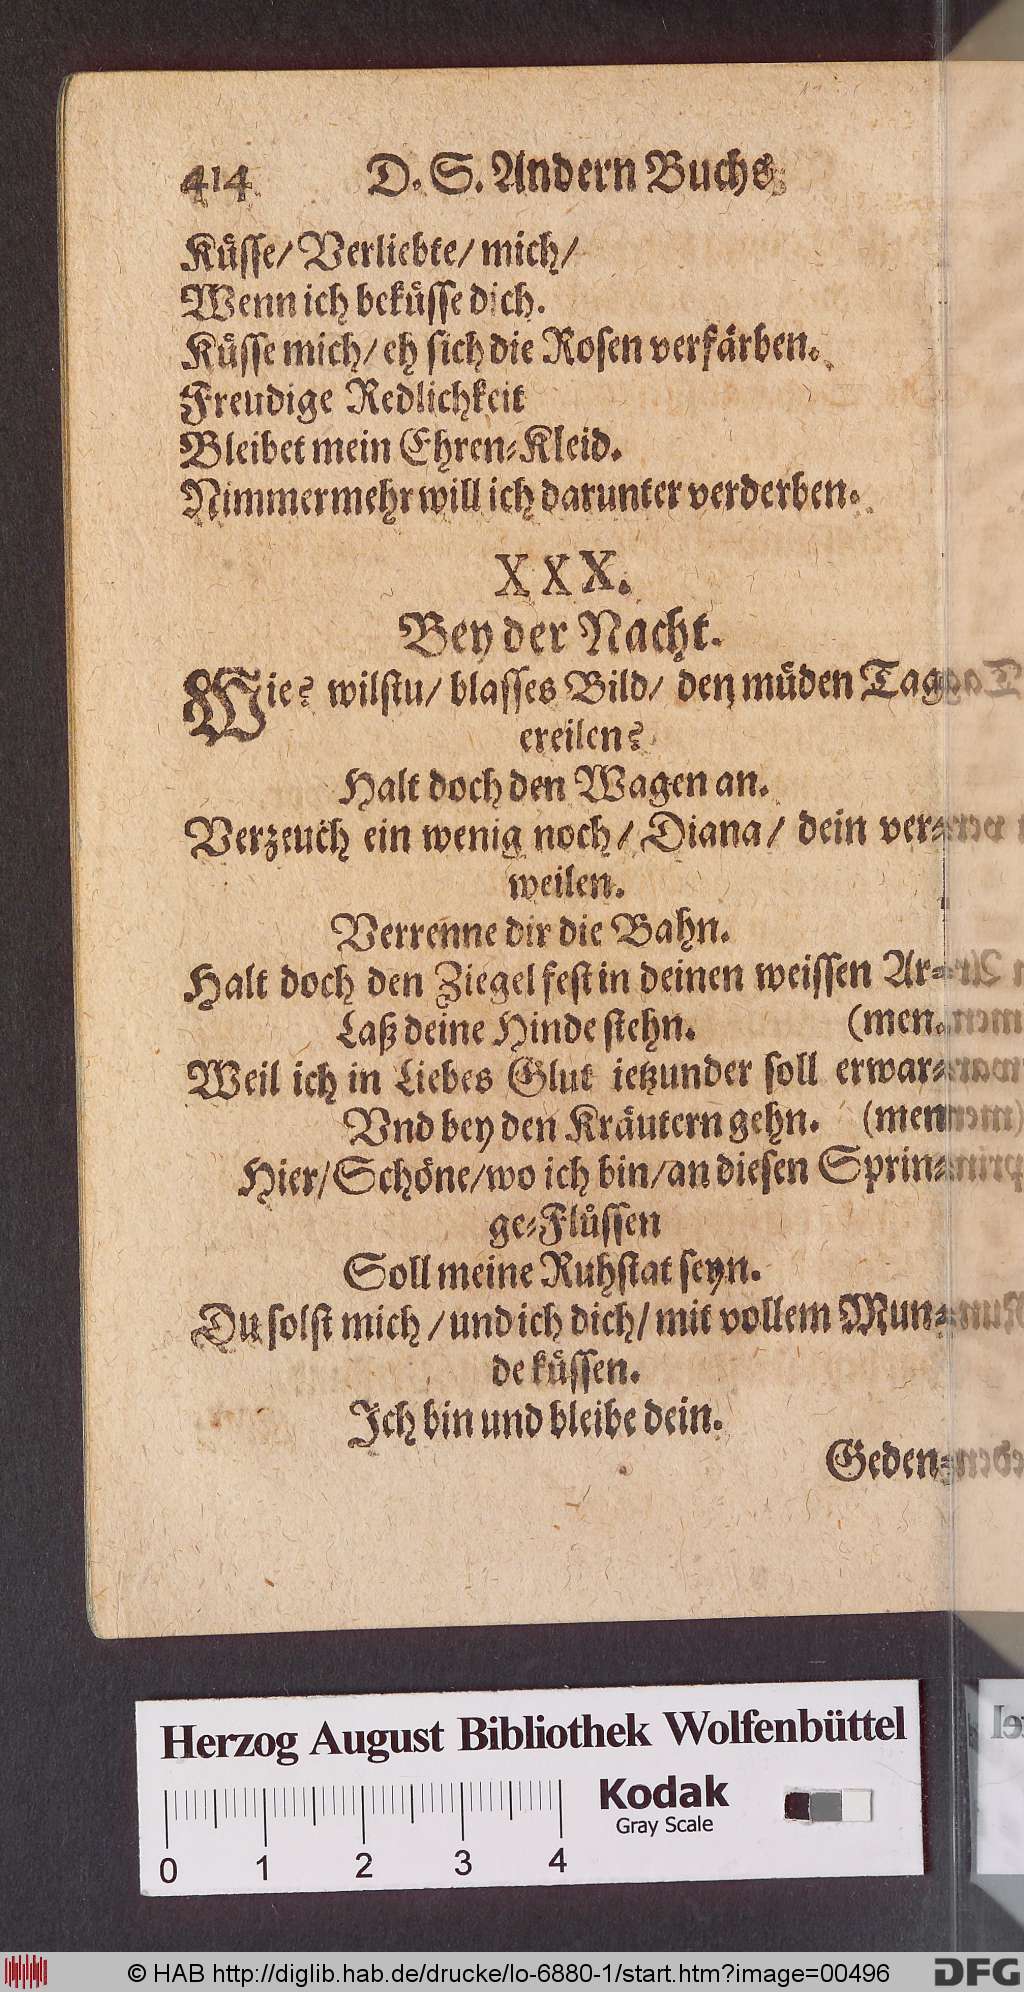 414 D. S. Andern Buchs
Küsse/ Verliebte/ mich/
Wenn ich beküsse dich.
Küsse mich/ eh sich die Rosen verfärben.
Freudige Redlichkeit
Bleibet mein Ehren-Kleid.
Nimmermehr will ich darunter verderben.
XXX.
Bey der Nacht.
Wie? wilstu/ blasses Bild/ den müden Tag
ereilen?
Halt doch den Wagen an.
Verzeuch ein wenig noch/ Diana/ dein ver-
weilen.
Verrenne dir die Bahn.
Halt doch den Ziegel fest in deinen weissen Ar-
Laß deine Hinde stehn. (men.
Weil ich in Liebes Glut ietzunder soll erwar-
Vnd bey den Kräutern gehn. (men
Hier/ Schöne/ wo ich bin/ an diesen Sprin-
ge-Flüssen
Soll meine Ruhstat seyn.
Du solst mich/ und ich dich/ mit vollem Mun-
de küssen.
Ich bin und bleibe dein.
Geden-
Herzog August Bibliothek Wolfenbüttel
Kodak
Gray Scale
0 1 2 3 4
© HAB http://diglib.hab.de/drucke/lo-6880-1/start.htm?image=00496
DFG